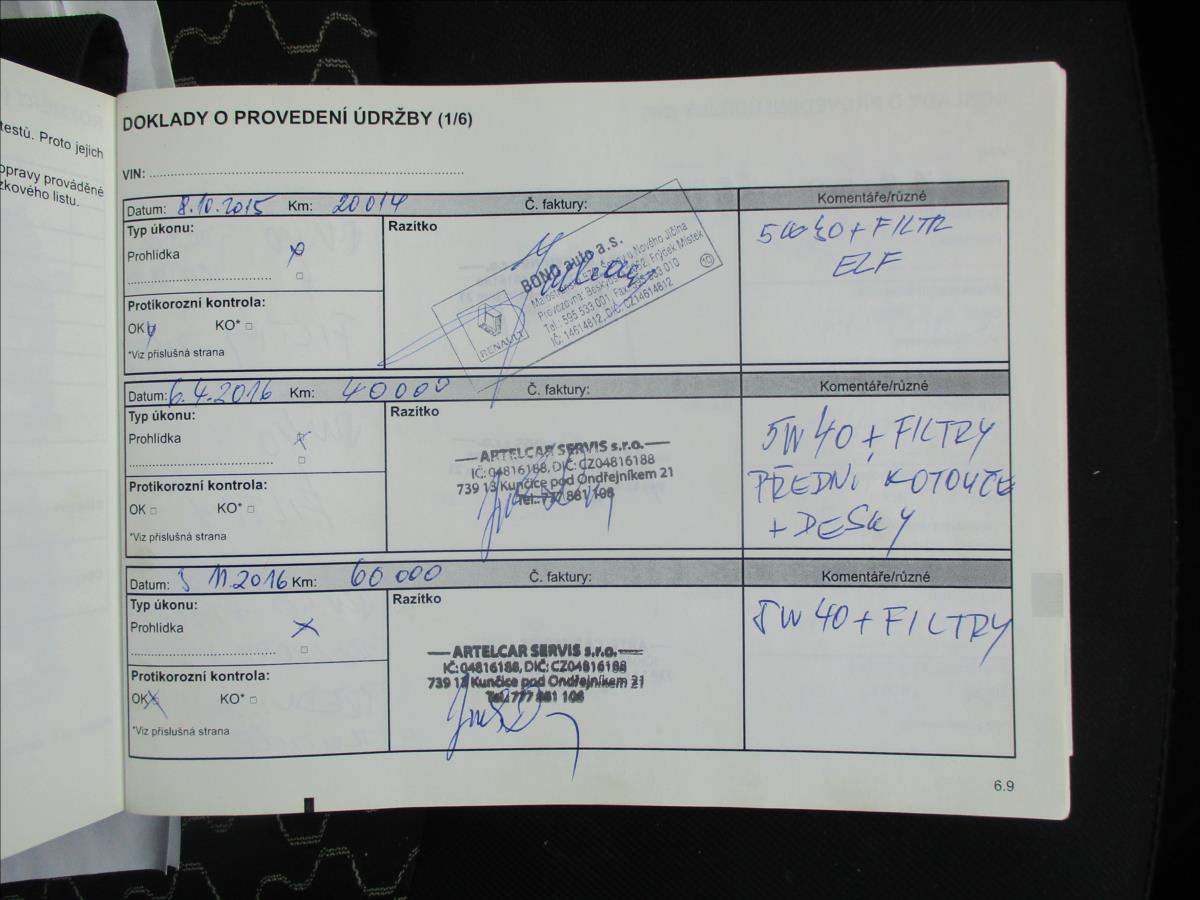 testů. Proto jejich
opravy prováděné
zkového listu.
DOKLADY O PROVEDENÍ ÚDRŽBY (1/6)
VIN:
Datum: 8.10.2015 Km: 20014 Č. faktury: Komentáře/různé
Typ úkonu:
Prohlídka
Razítko
BONO auto a.s.
Tel.: 595 533 001, Fax: 595 533 010
IČ: 14614812, DIČ: CZ14614812
RENAULT
10
+ FILTR
ELF
Protikorozní kontrola:
OK KO*
*Viz příslušná strana
Datum: 6.4.2016 Km: 40000 Č. faktury: Komentáře/různé
Typ úkonu:
Prohlídka
Razítko
ARTELCAR SERVIS s.r.o.
IČ: 04816188, DIČ: CZ04816188
739 13 Kunčice pod Ondřejníkem 21
Tel.: 777 881 108
5W40 + FILTRY
PŘEDNÍ KOTOUČE
+ DESKY
Protikorozní kontrola:
OK KO*
*Viz příslušná strana
Datum: 11.2016 Km: 60 000 Č. faktury: Komentáře/různé
Typ úkonu:
Prohlídka
Razítko
ARTELCAR SERVIS s.r.o.
IČ: 04816188, DIČ: CZ04816188
739 13 Kunčice pod Ondřejníkem 21
Tel.: 777 881 108
5W40 + FILTRY
Protikorozní kontrola:
OK KO*
*Viz příslušná strana
6.9